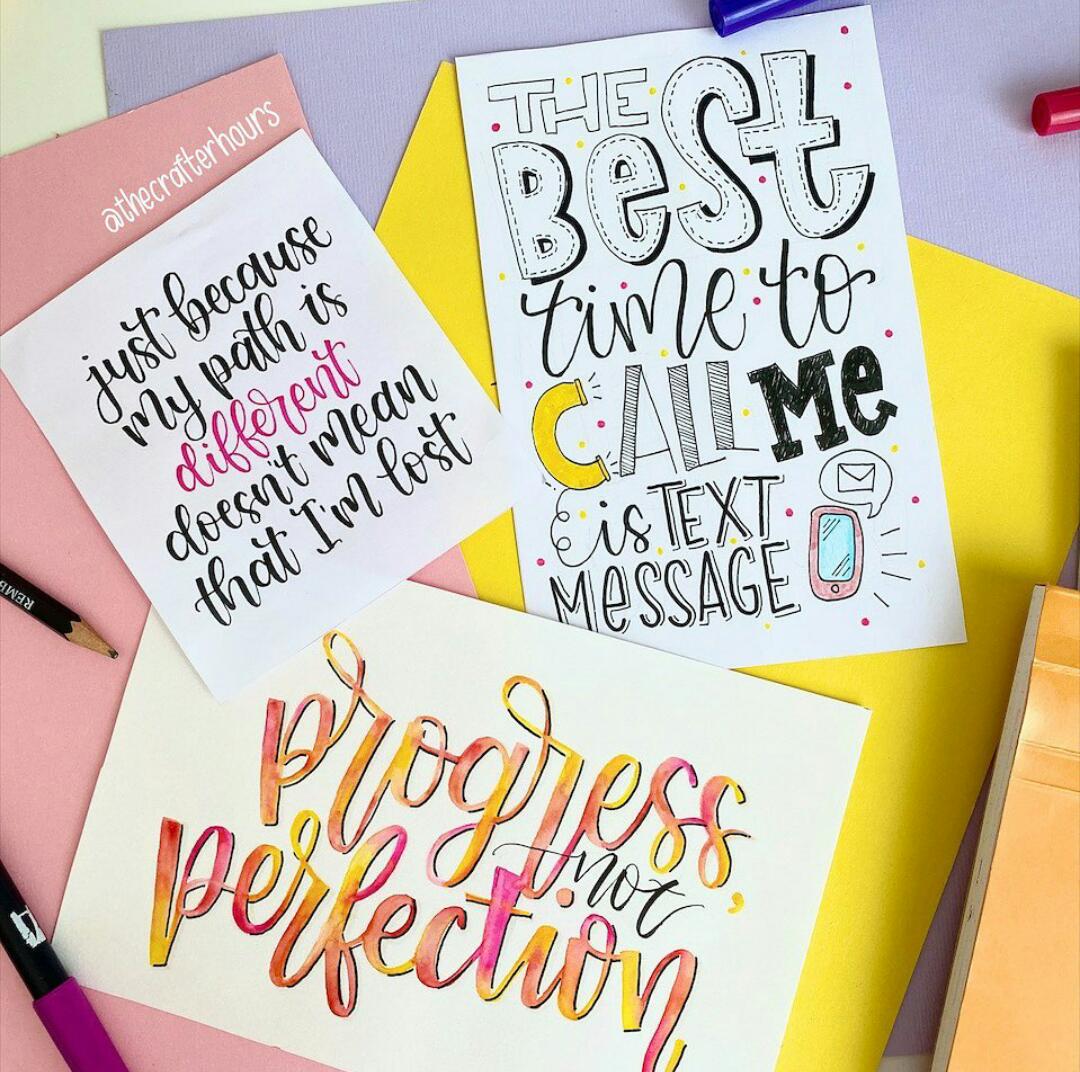 @thecrafterhours
just because
my path is
different
doesn't mean
that I'm lost
THE
BeSt
time to
CALL Me
is TEXT
MeSSAGE
progress,
not
perfection
REMB